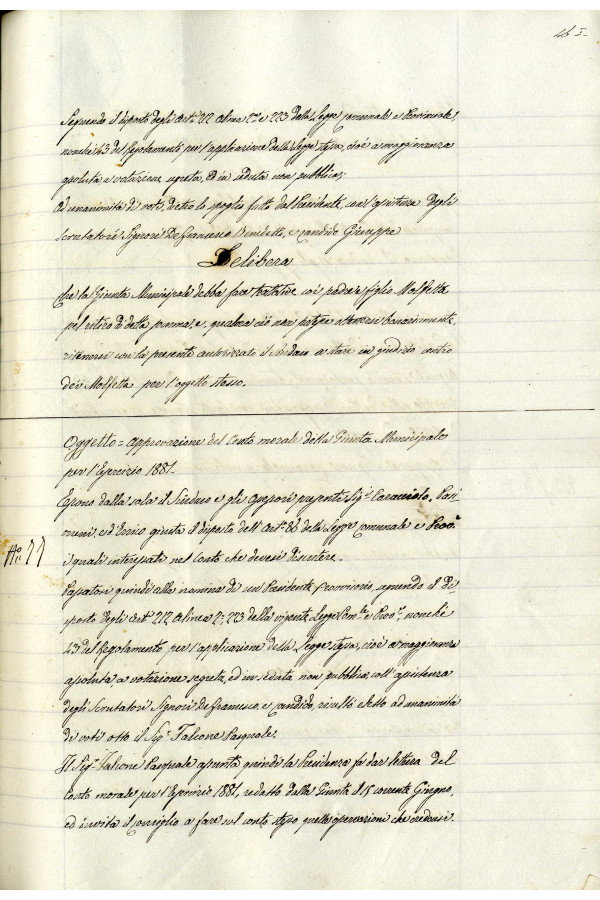 465
Seguendo il disposto degli art.i 212 alinea 2.o e 223 della Legge comunale e Provinciale,
nonché 43 del Regolamento per l'applicazione della Legge stessa, cioè a maggioranza
assoluta a votazione segreta, ed in seduta non pubblica;
Ad unanimità di voti, dietro lo spoglio fatto dal Presidente coll'assistenza degli
Scrutatori Signori De Francesco Benedetto, e Candido Giuseppe
Delibera
Che la Giunta Municipale debba fare tentative coi padre e figlio Molfetta
pel ritiro di detta somma, e, qualora ciò non potesse ottenersi bonariamente,
ritenersi con la presente autorizzato il Sindaco a stare in giudizio contro
dei Molfetta per l'oggetto stesso.
Oggetto = Approvazione del Conto morale della Giunta Municipale
per l'Esercizio 1881.
Escono dalla sala il Sindaco e gli Assessori presenti Sig.i Caracciolo, Pas-
ed Errico giusta il disposto dell'Art.o 86 della Legge Comunale e Prov.e
i quali interessati nel Conto che devesi discutere.
No 77
Passatosi quindi alla nomina di un Presidente provvisorio, seguendo il di-
sposto degli Art.i 212 alinea 2.o 223 della vigente Legge Com.le e Prov.e, nonché
43 del Regolamento per l'applicazione della Legge stessa, cioè a maggioranza
assoluta, a votazione segreta, ed in seduta non pubblica, coll'assistenza
degli Scrutatori Signori De Francesco, e Candido, risultò eletto ad unanimità
di voti otto il Sig.r Falcone Pasquale.
Il Sig.r Falcone Pasquale assunta quindi la Presidenza fa dar lettura del
Conto morale per l'Esercizio 1881, redatto dalla Giunta il 15 corrente Giugno,
ed invita il Consiglio a fare sul conto stesso quelle osservazioni che credansi.